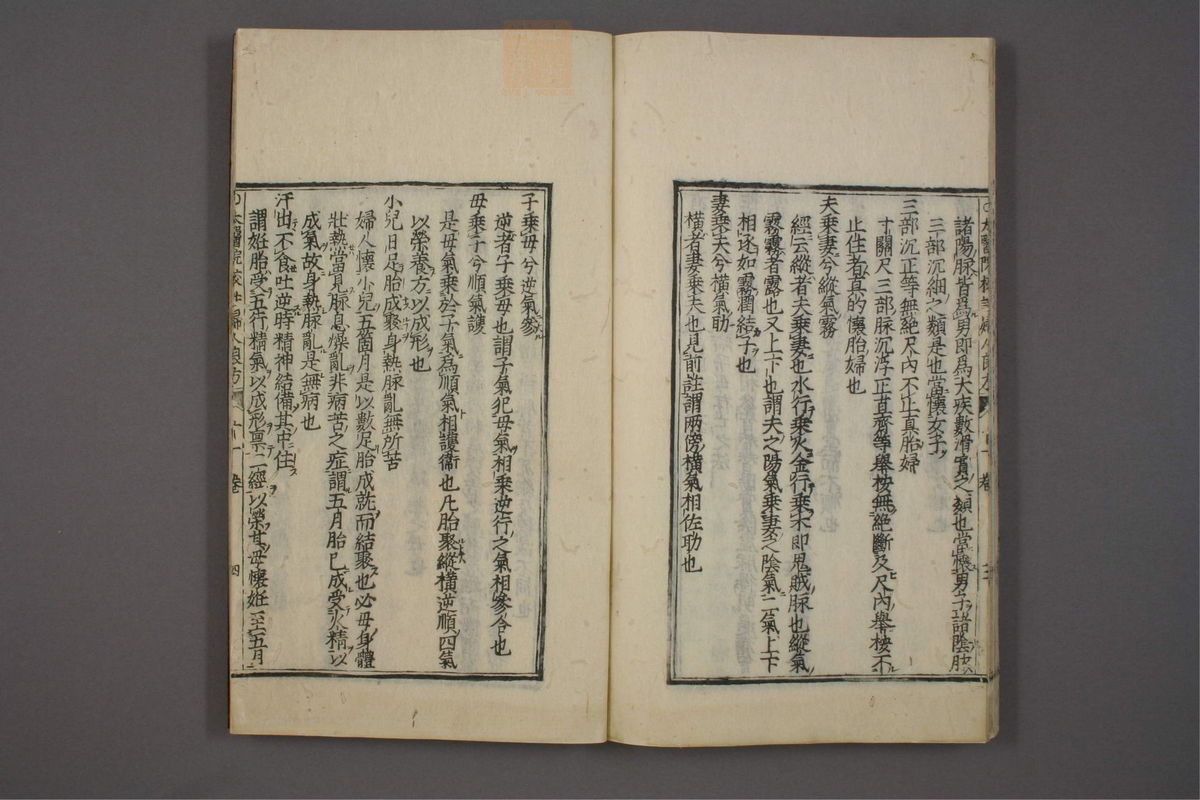 諸陽脉皆爲男即爲大疾數滑實之類也當懷男子諸陰脉
三部沉細之類是也當懷女子
三部沉正等無絕尺內不止真胎婦
寸關尺三部脉沉浮正直齊等舉按無絕斷及尺內舉按不
止住者真的懷胎婦也
夫乘妻兮縱氣霧
經云縱者夫乘妻也水行乘火金行乘木即鬼賊脉也縱氣
霧霧者露也又上下也謂夫之陽氣乘妻之陰氣二氣上下
相逐如霧潤結子也
妻乘夫兮橫氣助
橫者妻乘夫也見前註謂兩傍橫氣相佐助也
子乘母兮逆氣參
逆者子乘母也謂子氣犯母氣相乘逆行之氣相參合也
母乘子兮順氣護
是母氣乘於子氣爲順氣相護衞也凡胎聚縱橫逆順四氣
以榮養方以成形也
小兒日足胎成聚身熱脉亂無所苦
婦人懷小兒五箇月是以數足胎成就而結聚也必母身體
壯熱當覓脉息燥亂非病苦之症謂五月胎已成受火精以
成氣故身熱脉亂是無病也
汗出不食吐逆時精神結備其中住
謂妊胎受五行精氣以成形禀二經以榮其母懷妊至五月
太醫院校註婦人良方 卷 四